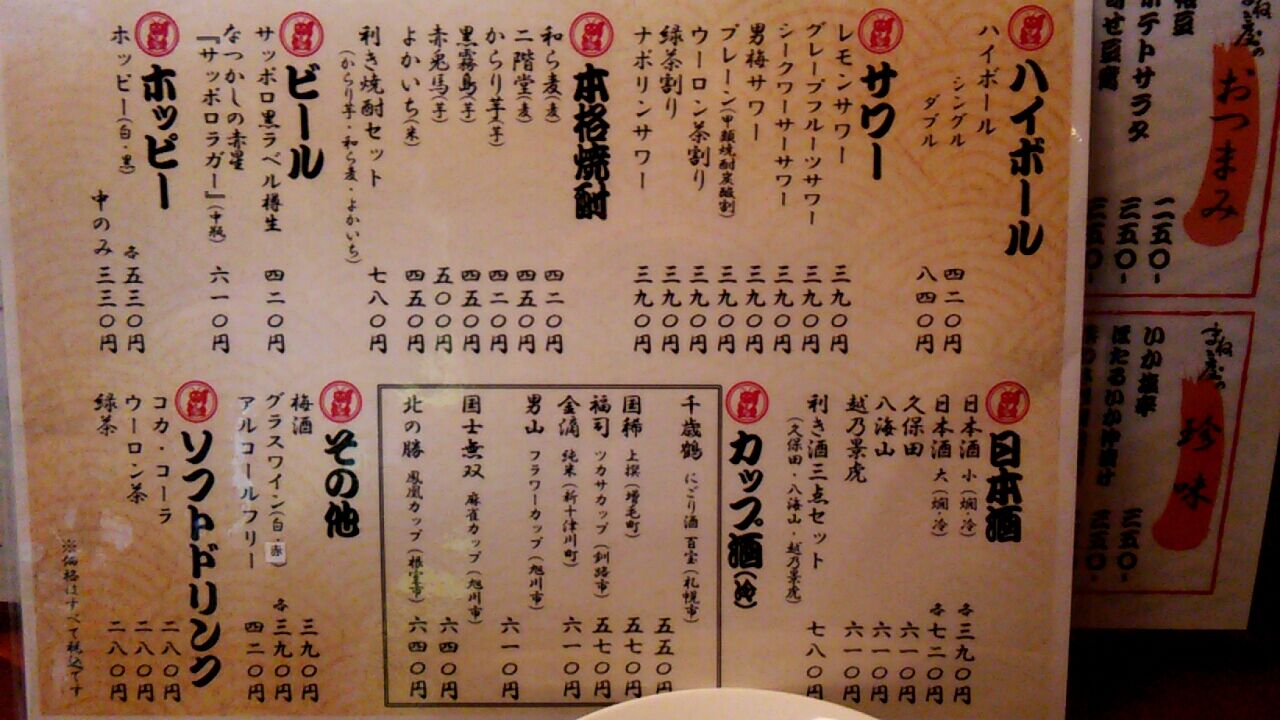 ハイボール
ハイボール
シングル 四二〇円
ダブル 八四〇円
サワー
レモンサワー 三九〇円
グレープフルーツサワー 三九〇円
シークワーサーサワー 三九〇円
男梅サワー 三九〇円
プレーン(甲類焼酎炭酸割) 三九〇円
ウーロン茶割り 三九〇円
緑茶割り 三九〇円
ナポリンサワー 三九〇円
本格焼酎
和ら麦(麦) 四二〇円
二階堂(麦) 四五〇円
からり芋(芋) 四二〇円
黒霧島(芋) 四五〇円
赤兎馬(芋) 五〇〇円
よかいち(米) 四五〇円
利き焼酎セット 七八〇円
(からり芋・和ら麦・よかいち)
ビール
サッポロ黒ラベル樽生 四二〇円
なつかしの赤星
『サッポロラガー』(中瓶) 六一〇円
ホッピー
ホッピー(白・黒) 各五三〇円
中のみ 三三〇円
日本酒
日本酒 小(燗・冷) 各三九〇円
日本酒 大(燗・冷) 各七二〇円
久保田 六一〇円
八海山 六一〇円
越乃景虎 六一〇円
利き酒三点セット 七八〇円
(久保田・八海山・越乃景虎)
カップ酒(冷)
千歳鶴 にごり酒 百宝(札幌市) 五五〇円
国稀 上撰(増毛町) 五七〇円
福司 ツカサカップ(釧路市) 五七〇円
金滴 純米(新十津川町) 六一〇円
男山 フラワーカップ(旭川市) 六一〇円
国士無双 麻雀カップ(旭川市) 六四〇円
北の勝 鳳凰カップ(根室市) 六四〇円
その他
梅酒 三九〇円
グラスワイン(白・赤) 各三九〇円
アルコールフリー 四二〇円
ソフトドリンク
コカ・コーラ 二八〇円
ウーロン茶 二八〇円
緑茶 二八〇円
※価格はすべて税込です
おつまみ
ポテトサラダ
珍味
いか塩辛
ほたるいか沖漬け